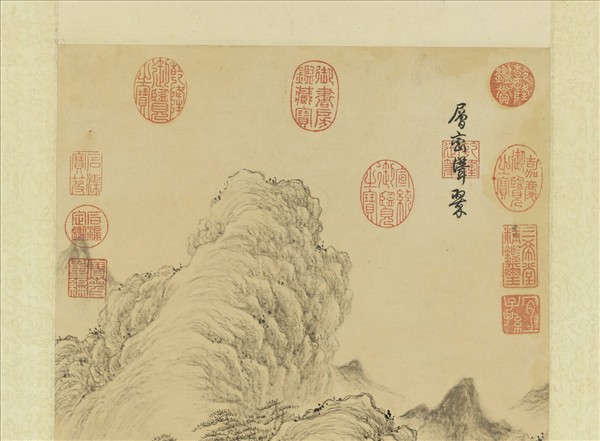 乾隆鑑賞
嘉慶御覽之寶
三希堂精鑑璽
宜子孫
層巒聳翠
宣統御覽之寶
御書房鑑藏寶
乾隆御覽之寶
石渠寶笈
石渠定鑑
寶笈重編